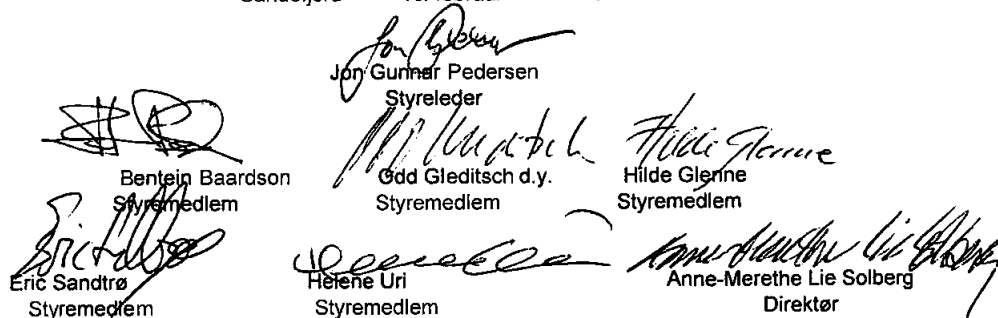 Jon Gunnar Pedersen
Styreleder
Bentein Baardson
Styremedlem
Odd Gleditsch d.y.
Styremedlem
Hilde Glenne
Hilde Glenne
Styremedlem
Eric Sandtrø
Styremedlem
Helene Uri
Styremedlem
Anne-Merethe Lie Solberg
Anne-Merethe Lie Solberg
Direktør